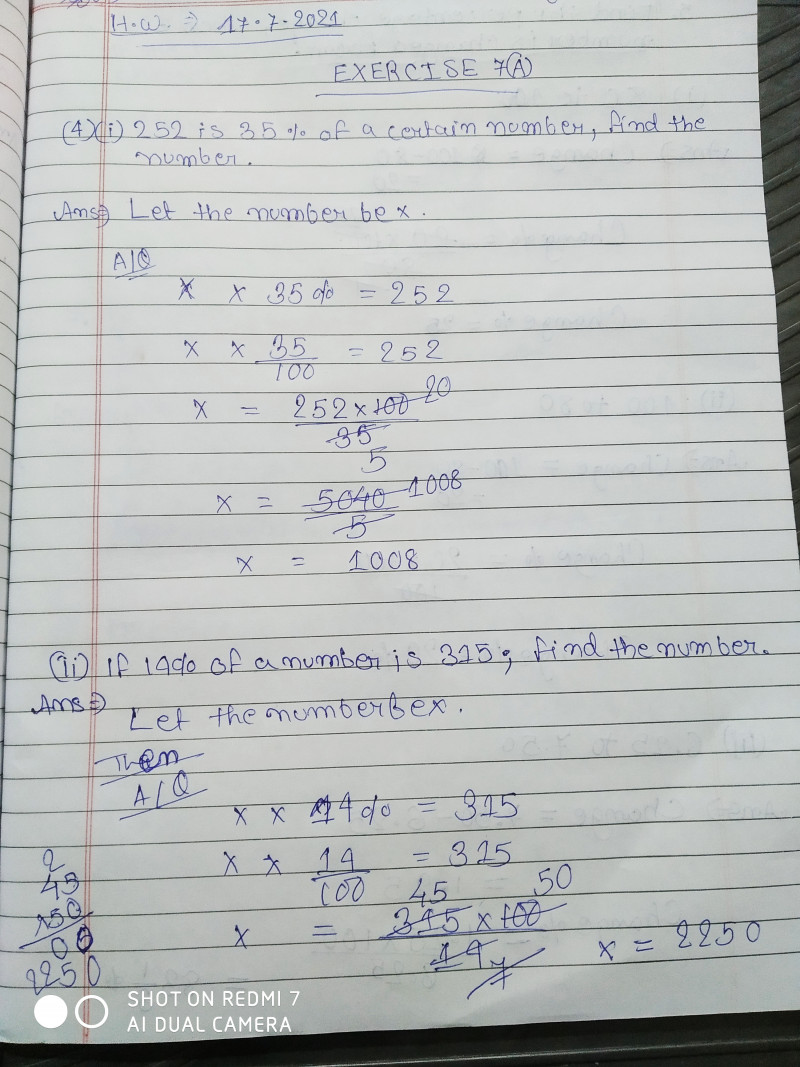 H.W. ⇒ 17.7.2021
EXERCISE 7(A)
(4)(i) 252 is 35% of a certain number, find the
number.
Ans⇒ Let the number be x.
A/Q
x × 35% = 252
x × 35/100 = 252
x = 252×100 20
35
5
x = 5040 1008
5
x = 1008
(ii) If 14% of a number is 315; find the number.
Ans⇒
Let the number be x.
Then
A/Q
x × 14% = 315
x × 14/100 = 315
45 50
x = 315 × 100
14 7
x = 2250
2
45
×50
00
2250
SHOT ON REDMI 7
AI DUAL CAMERA